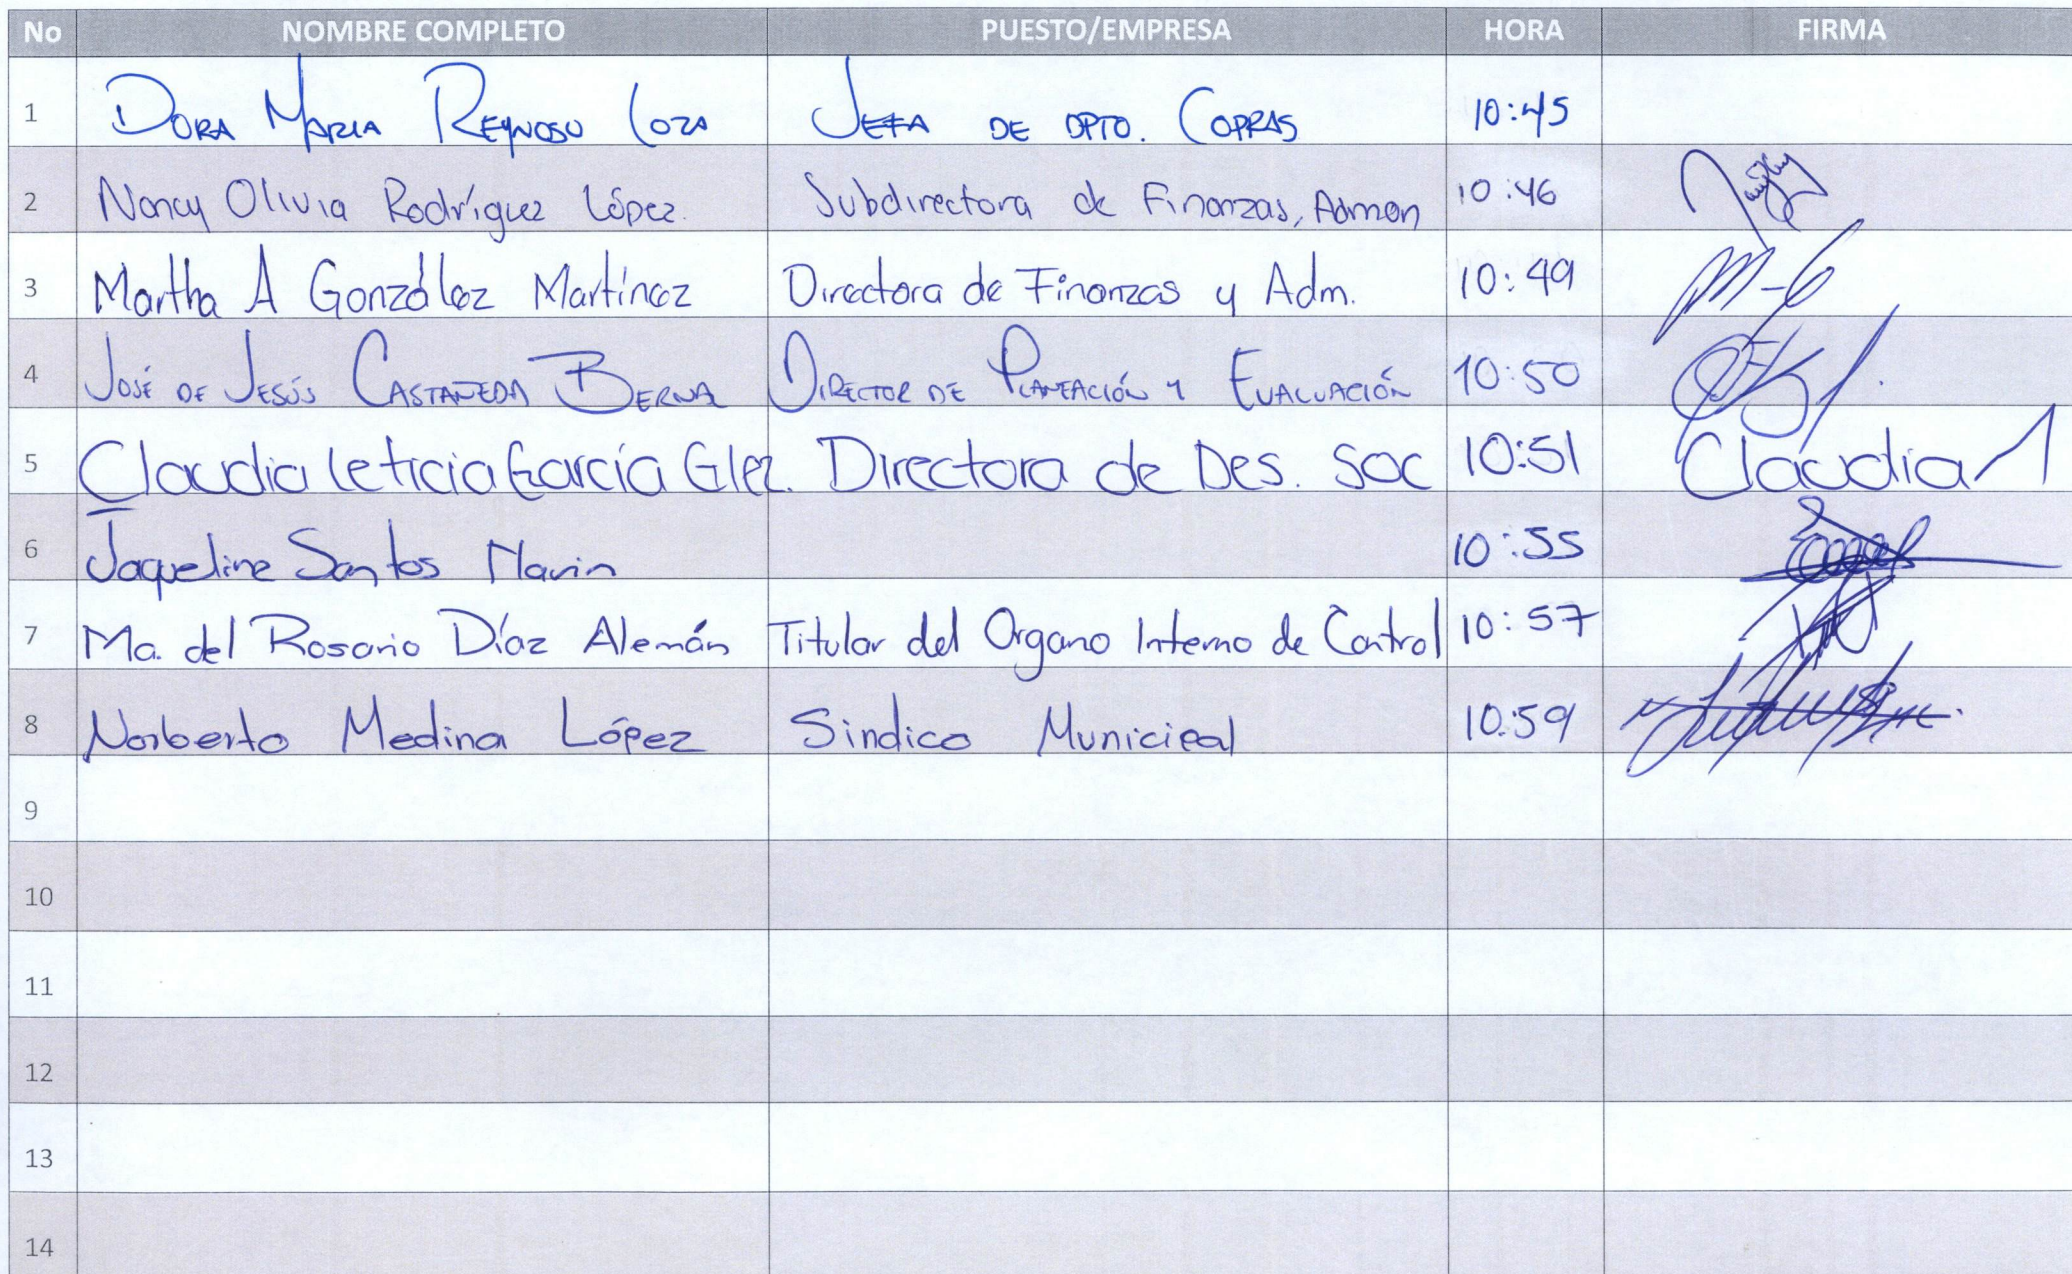 No NOMBRE COMPLETO PUESTO/EMPRESA HORA FIRMA
1 DORA MARIA REYNOSO LOZA JEFA DE DPTO. COPRAS 10:45
2 Nancy Olivia Rodríguez López. Subdirectora de Finanzas, Admon 10:46
3 Martha A González Martínez Directora de Finanzas y Adm. 10:49 M-G
4 JOSÉ DE JESÚS CASTAÑEDA BERNA DIRECTOR DE PLANEACIÓN Y EVALUACIÓN 10:50
5 Claudia Leticia García Glez. Directora de Des. Soc 10:51 Claudia
6 Jaqueline Santos Marin 10:55
7 Ma. del Rosario Díaz Alemán Titular del Organo Interno de Control 10:57
8 Norberto Medina López Sindico Municipal 10:59
9
10
11
12
13
14